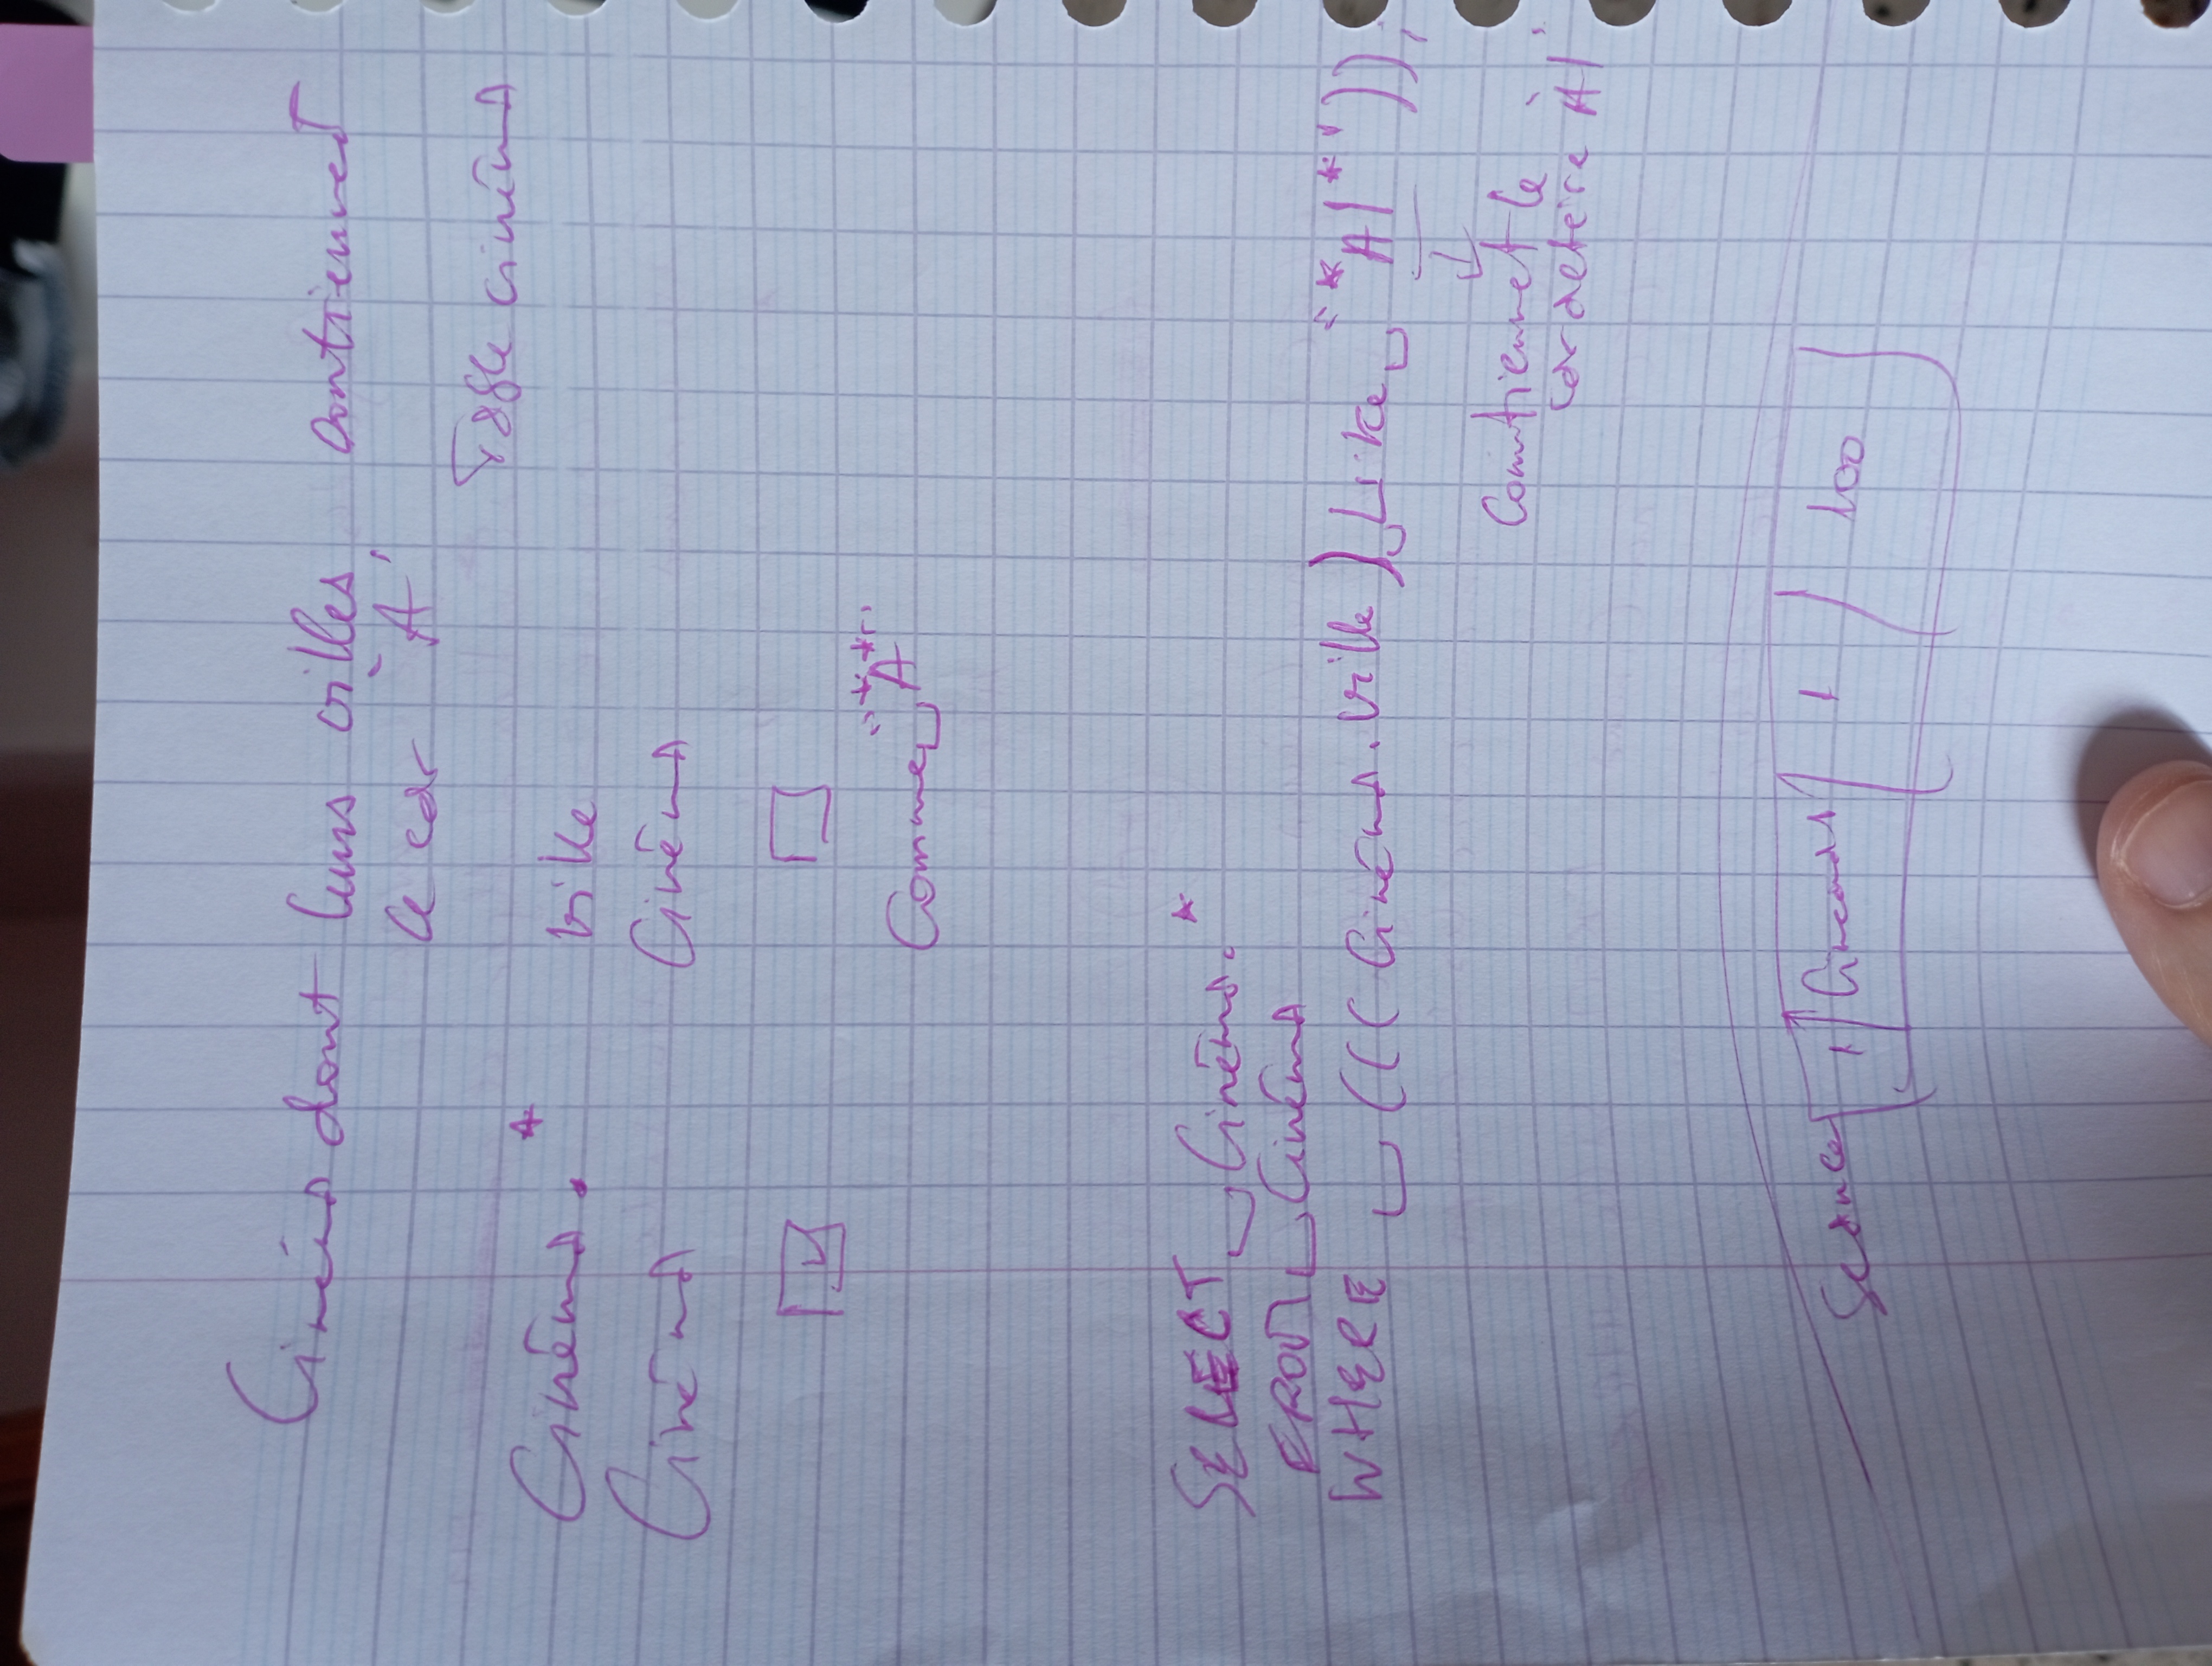 Cinéma dont leurs villes contiennent
le car 'A'
Table cinéma
Cinéma.* ville
Cinéma Cinéma
Comme "*A*"
SELECT Cinéma.*
FROM Cinéma
WHERE (((Cinéma.Ville) Like "*A*"));
Contiennet le
caractère 'A'
Séance 1 Cinema 1 100